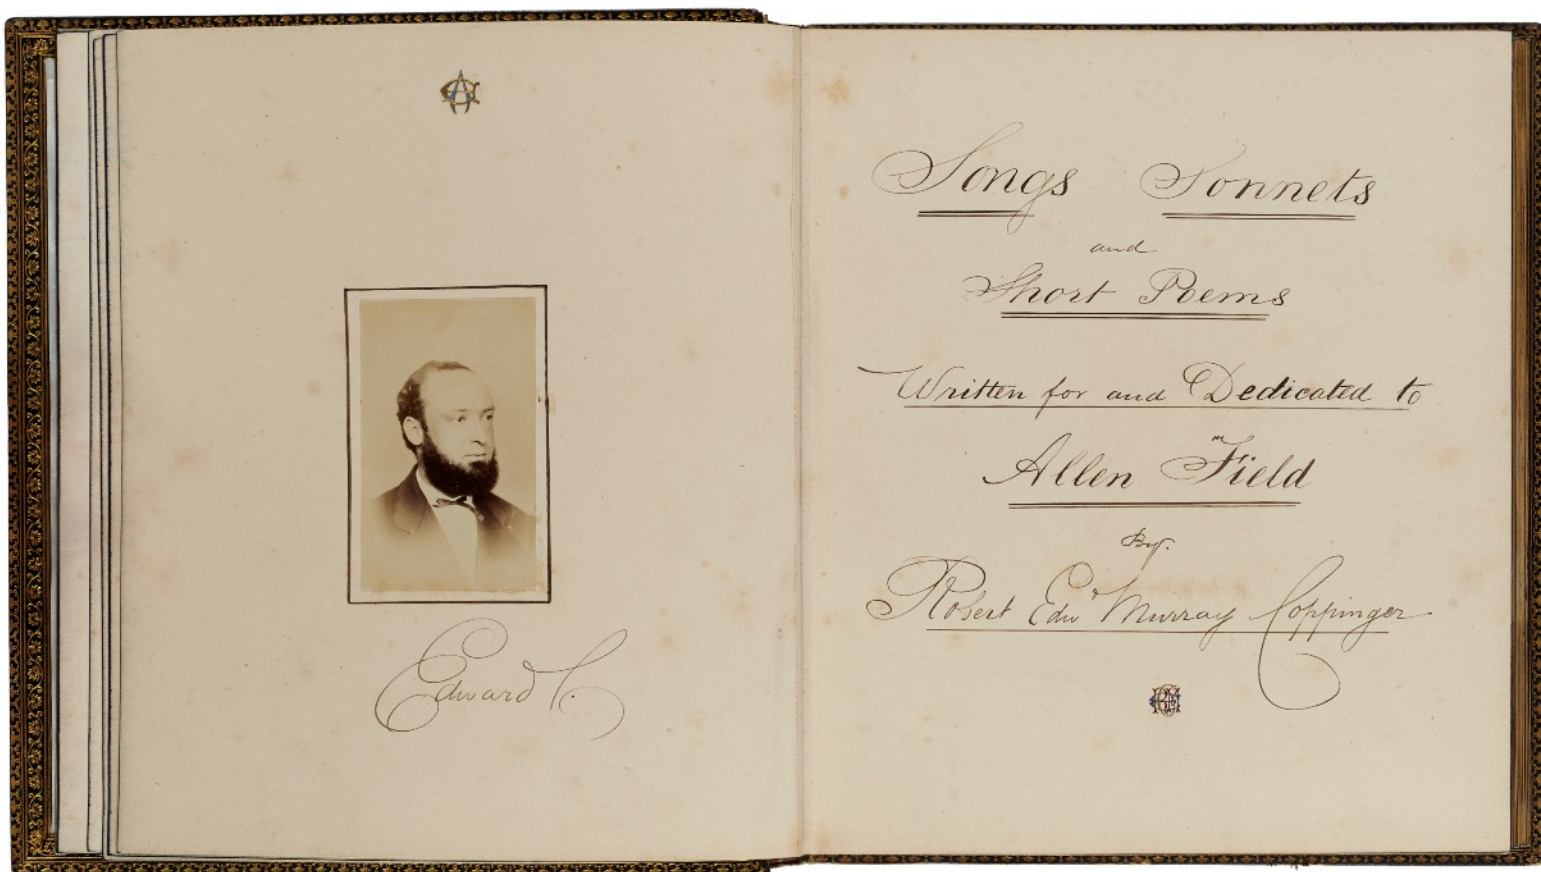 Edward C.
Songs Sonnets
and
Short Poems
Written for and Dedicated to
Allen Field
By.
Robert Edwd Murray Coppinger